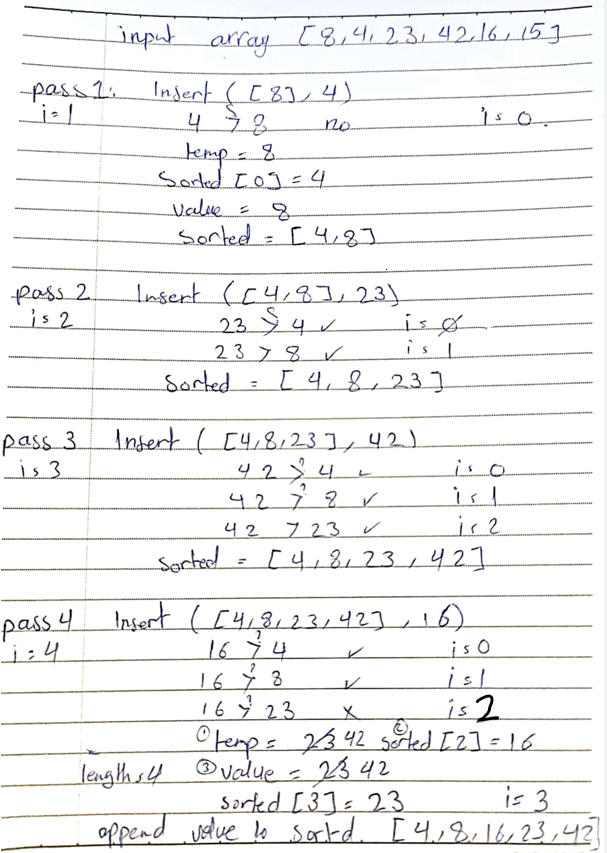 input array [8,4,23,42,16,15]
pass 1: Insert ([8],4)
i=1 4 >? 8 no i=0.
temp = 8
Sorted [0] = 4
value = 8
sorted = [4,8]
pass 2 Insert ([4,8],23)
i=2 23 >? 4 ✓ i=0
23 > 8 ✓ i=1
Sorted = [4,8,23]
pass 3 Insert ([4,8,23],42)
i=3 42 >? 4 ✓ i=0
42 >? 8 ✓ i=1
42 >23 ✓ i=2
Sorted = [4,8,23,42]
pass 4 Insert ([4,8,23,42],16)
i=4 16 >? 4 ✓ i=0
16 >? 8 ✓ i=1
16 >? 23 x i=2
① temp = 23 42 ② sorted [2] = 16
length=4 ③ value = 23 42
sorted [3] = 23 i=3
append value to sortd. [4,8,16,23,42]